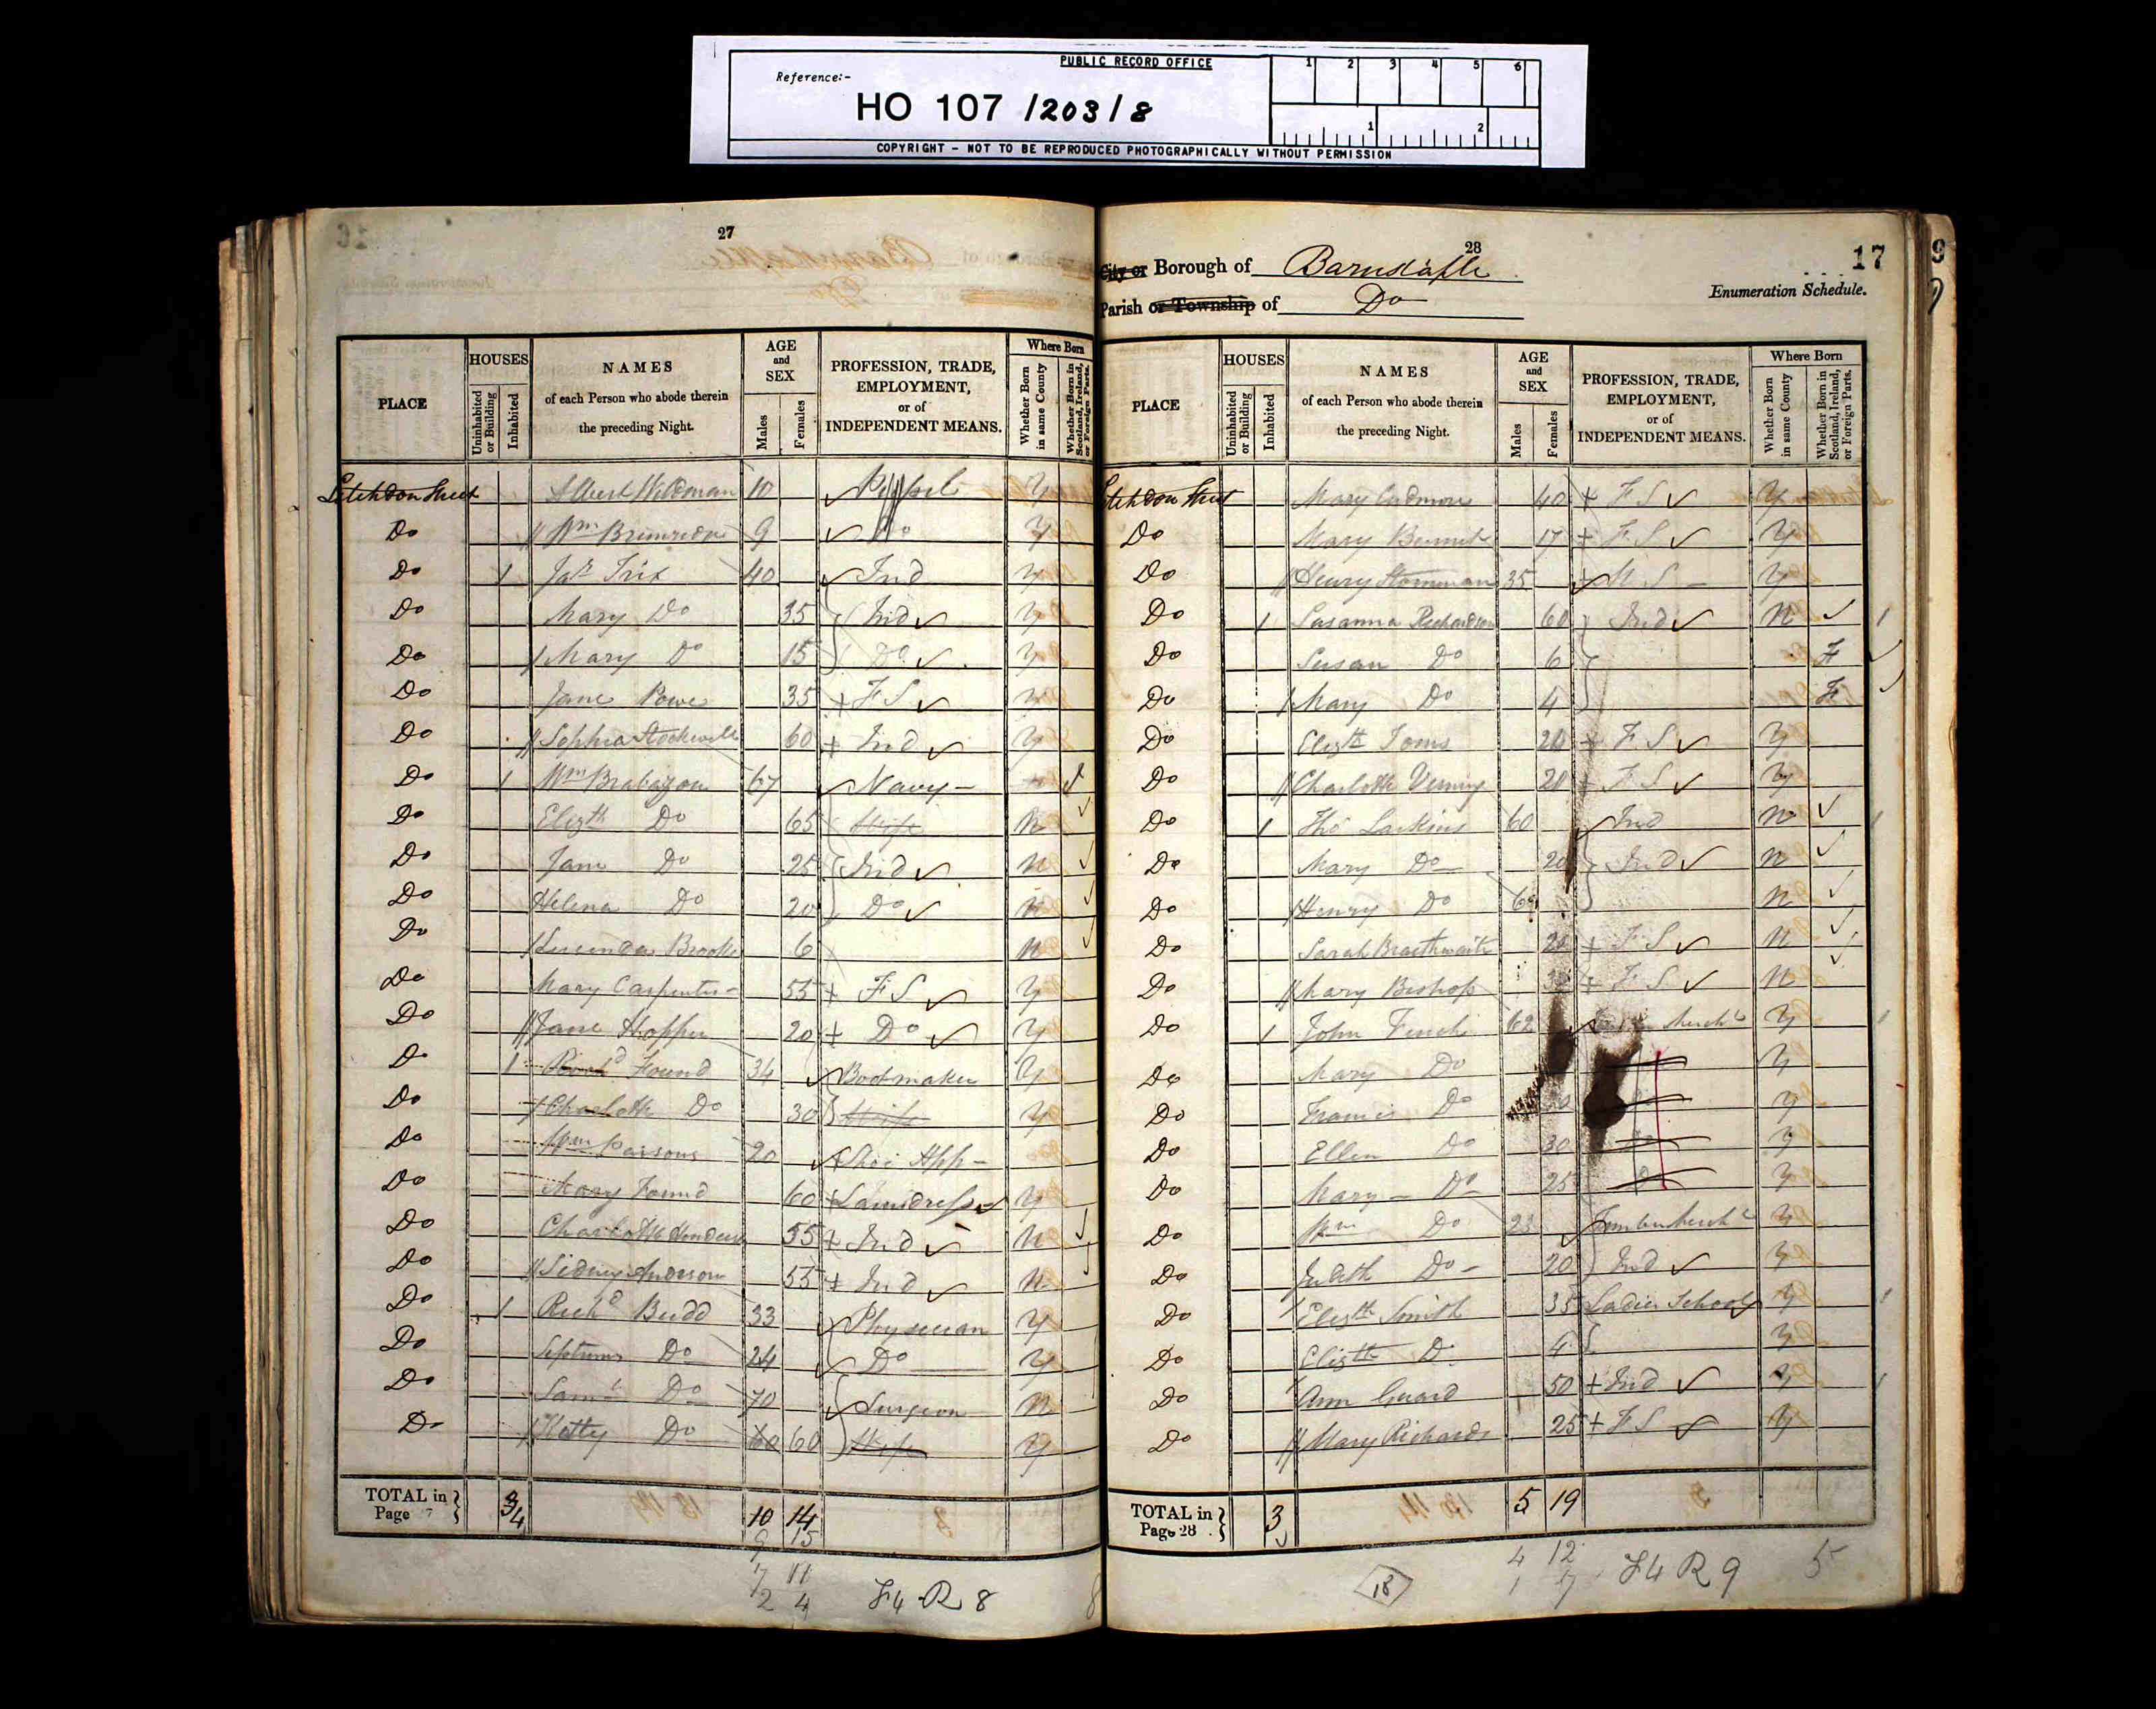 PUBLIC RECORD OFFICE
Reference:-
HO 107 /203/8
1 2 3 4 5 6
1 2
COPYRIGHT - NOT TO BE REPRODUCED PHOTOGRAPHICALLY WITHOUT PERMISSION
27
PLACE
HOUSES
Uninhabited or Building
Inhabited
NAMES
of each Person who abode therein
the preceding Night.
AGE
and
SEX
Males
Females
PROFESSION, TRADE,
EMPLOYMENT,
or of
INDEPENDENT MEANS.
Where Born
Whether Born in same County
Whether Born in Scotland, Ireland, or Foreign Parts.
Litchdon Street Albert Wildman 10 Y
Do Wm 9 Do Y
Do 1 Jas Trix 40 Ind Y
Do Mary Do 35 Ind Y
Do Mary Do 15 Do Y
Do Jane Powe 35 F S
Do Sophia Stockwell 60 Ind Y
Do 1 Wm Brabazon 67 Navy
Do Elizth Do 65 Wife N
Do Jane Do 25 Ind N
Do Helena Do 20 Do N
Do Lucinda Brooks 6 N
Do Mary Carpenter 55 F S Y
Do Jane Hopper 20 Do Y
Do 1 Found 34 Bootmaker Y
Do Charlotte Do 30 Wife Y
Do Wm Parsons 20 Shoe App
Do Mary Found 60 Laundress Y
Do Charlotte 55 Ind N
Do Sidney Anderson 55 Ind N
Do 1 Richd Budd 33 Physician Y
Do Septimus Do 24 Do Y
Do Saml Do 70 Surgeon N
Do Kitty Do 60 60 Wife Y
TOTAL in
Page 7
3
4
10 14
9 15
7 11
2 4
F4 R 8
28
17
City or Borough of Barnstaple
Enumeration Schedule.
Parish or Township of Do
PLACE
HOUSES
Uninhabited or Building
Inhabited
NAMES
of each Person who abode therein
the preceding Night.
AGE
and
SEX
Males
Females
PROFESSION, TRADE,
EMPLOYMENT,
or of
INDEPENDENT MEANS.
Where Born
Whether Born in same County
Whether Born in Scotland, Ireland, or Foreign Parts.
Litchdon Street Mary Cudmore 40 F S Y
Do Mary Bennet 17 F S Y
Do Henry 35 M S Y
Do 1 Susanna Richardson 60 Ind N
Do Susan Do 6 F
Do Mary Do 4 F
Do Elizth Toms 20 F S Y
Do Charlotte 20 F S Y
Do 1 Thos Larkins 60 Ind N
Do Mary Do 20 Ind N
Do Henry Do N
Do Sarah Braithwaite 20 F S N
Do Mary Bishop F S N
Do 1 John Finch 62 Mercht Y
Do Mary Do Y
Do Do Y
Do Ellen Do 30 Do Y
Do Mary Do 25 Do Y
Do Wm Do 23 Timber Mercht Y
Do Judith Do 20 Ind Y
Do Elizth Smith 35 Ladies School Y
Do Elizth Do 4 Y
Do Ann Guard 50 Ind Y
Do Mary Richards 25 F S Y
TOTAL in
Page 28
3
5 19
4 12
1 7
18
F4 R 9
5